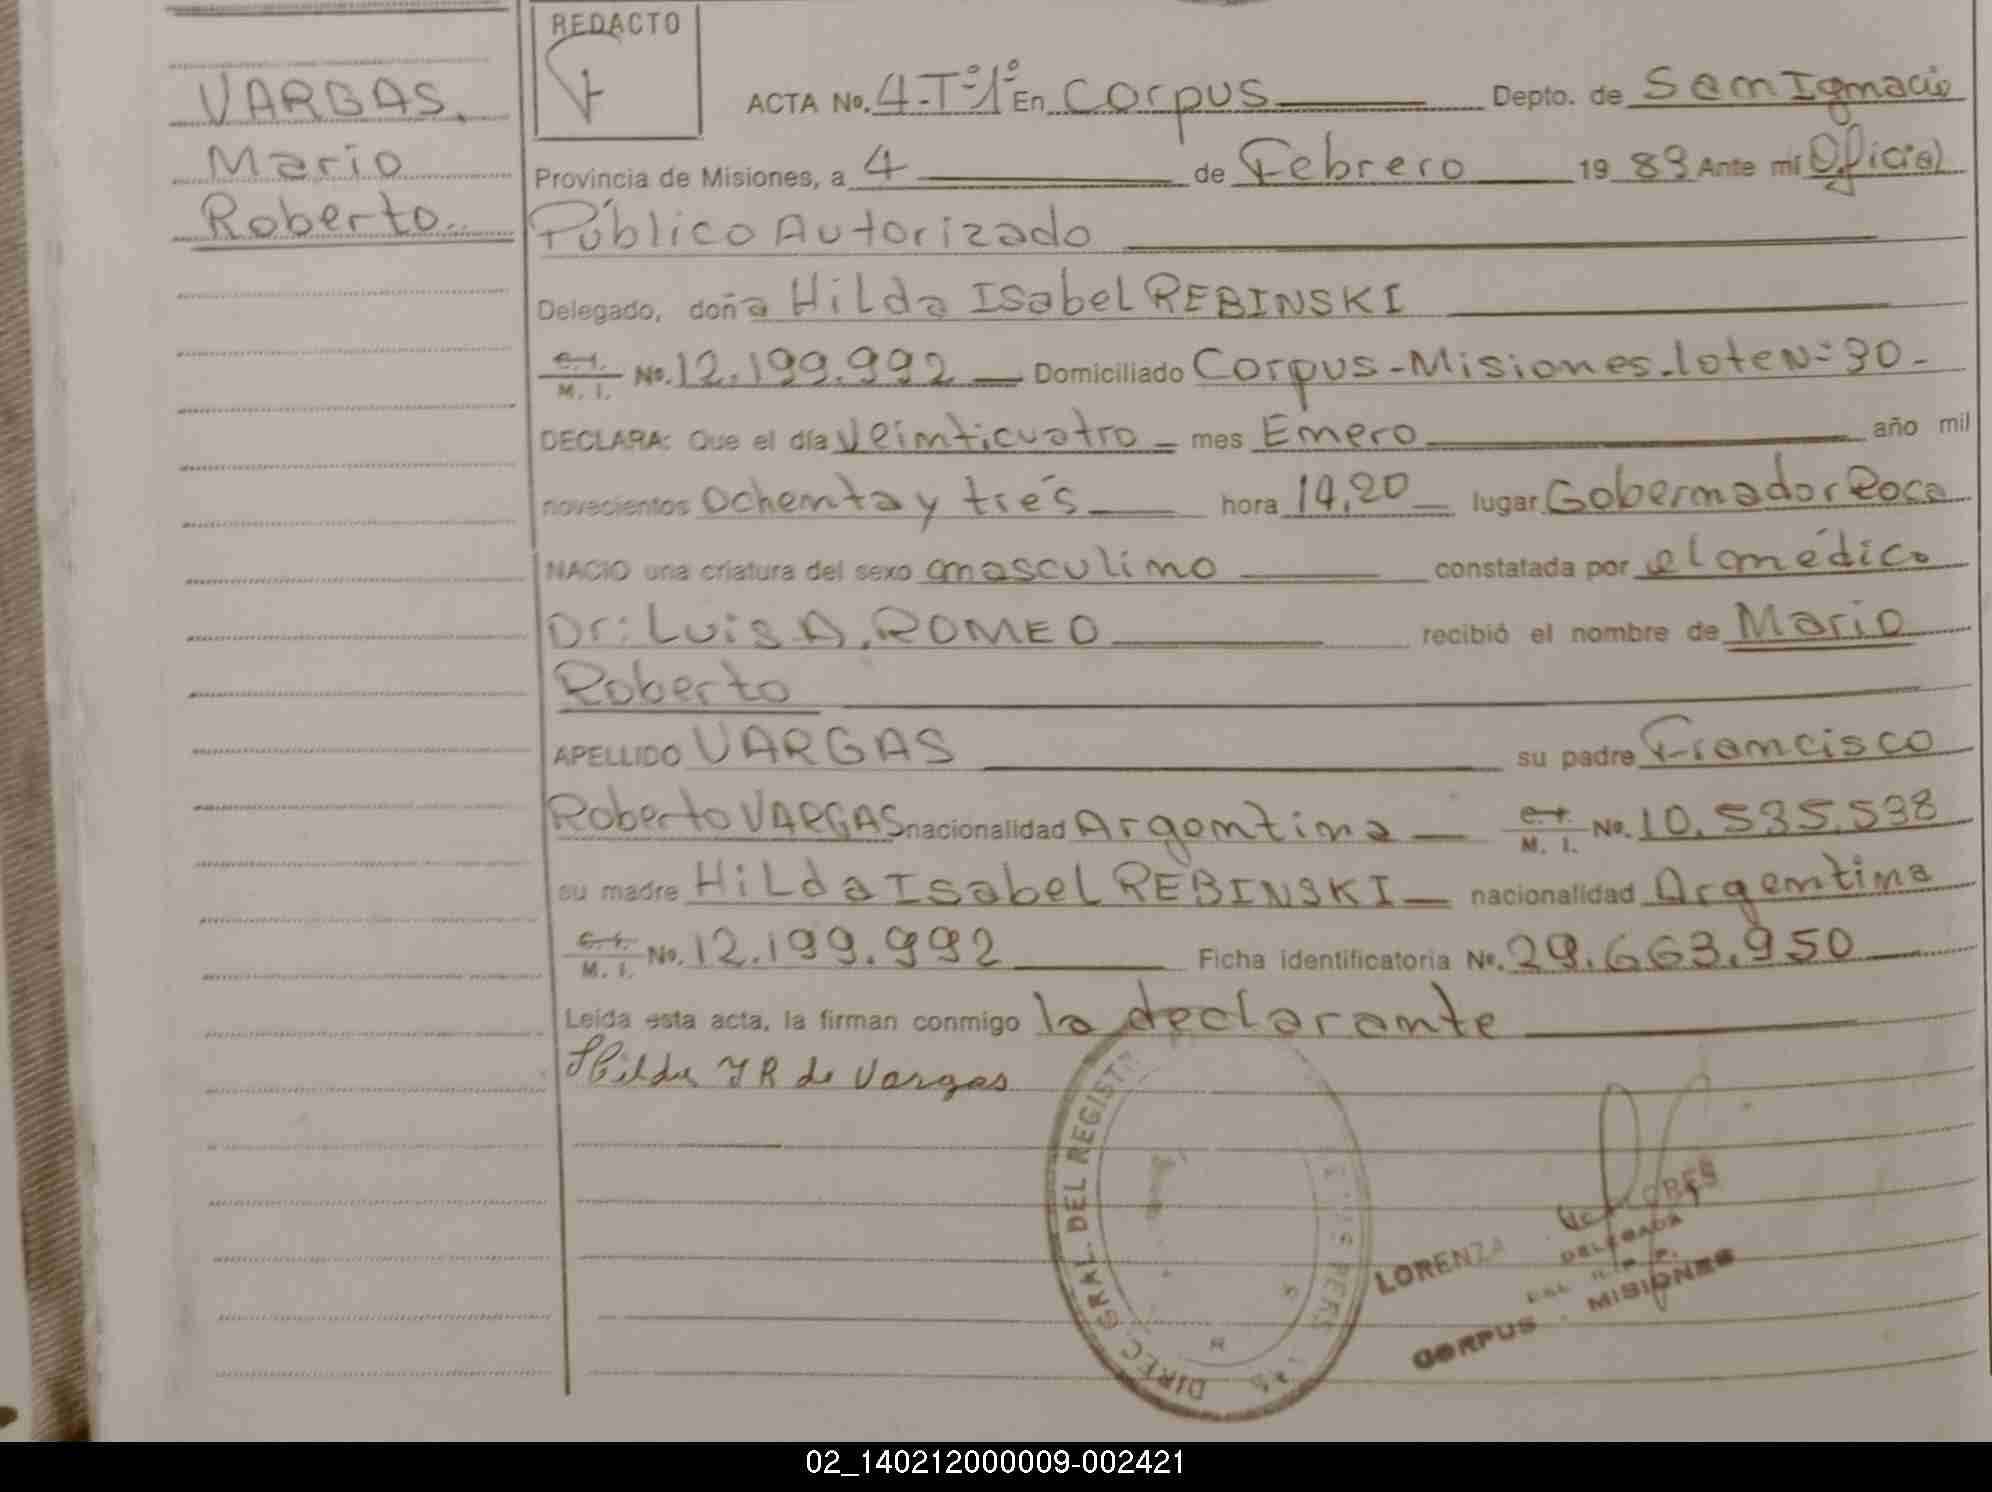 REDACTO
VARGAS,
Mario
Roberto
ACTA No. 4-Tº1º En Corpus Depto. de San Ignacio
Provincia de Misiones, a 4 de Febrero 19 83 Ante mí Oficial
Público Autorizado
Delegado, doña Hilda Isabel REBINSKI
C.I. M. I. No. 12.199.992 Domiciliado Corpus-Misiones-lote Nº 30-
DECLARA: Que el día Veinticuatro mes Enero año mil
novecientos Ochenta y trés hora 14,20 lugar Gobernador Roca
NACIO una criatura del sexo masculino constatada por el médico
Dr: Luis A. ROMEO recibió el nombre de Mario
Roberto
APELLIDO VARGAS su padre Francisco
Roberto VARGAS nacionalidad Argentina C.I. M. I. No. 10.535.538
su madre Hilda Isabel REBINSKI nacionalidad Argentina
C.I. M. I. No. 12.199.992 Ficha identificatoria No. 29.663.950
Leída esta acta, la firman conmigo la declarante
Hilda I R de Vargas
DIREC. GRAL. DEL REGIST PERS
LORENZA FLORES
DELEGADA
DEL R. P. P.
CORPUS - MISIONES
02_140212000009-002421